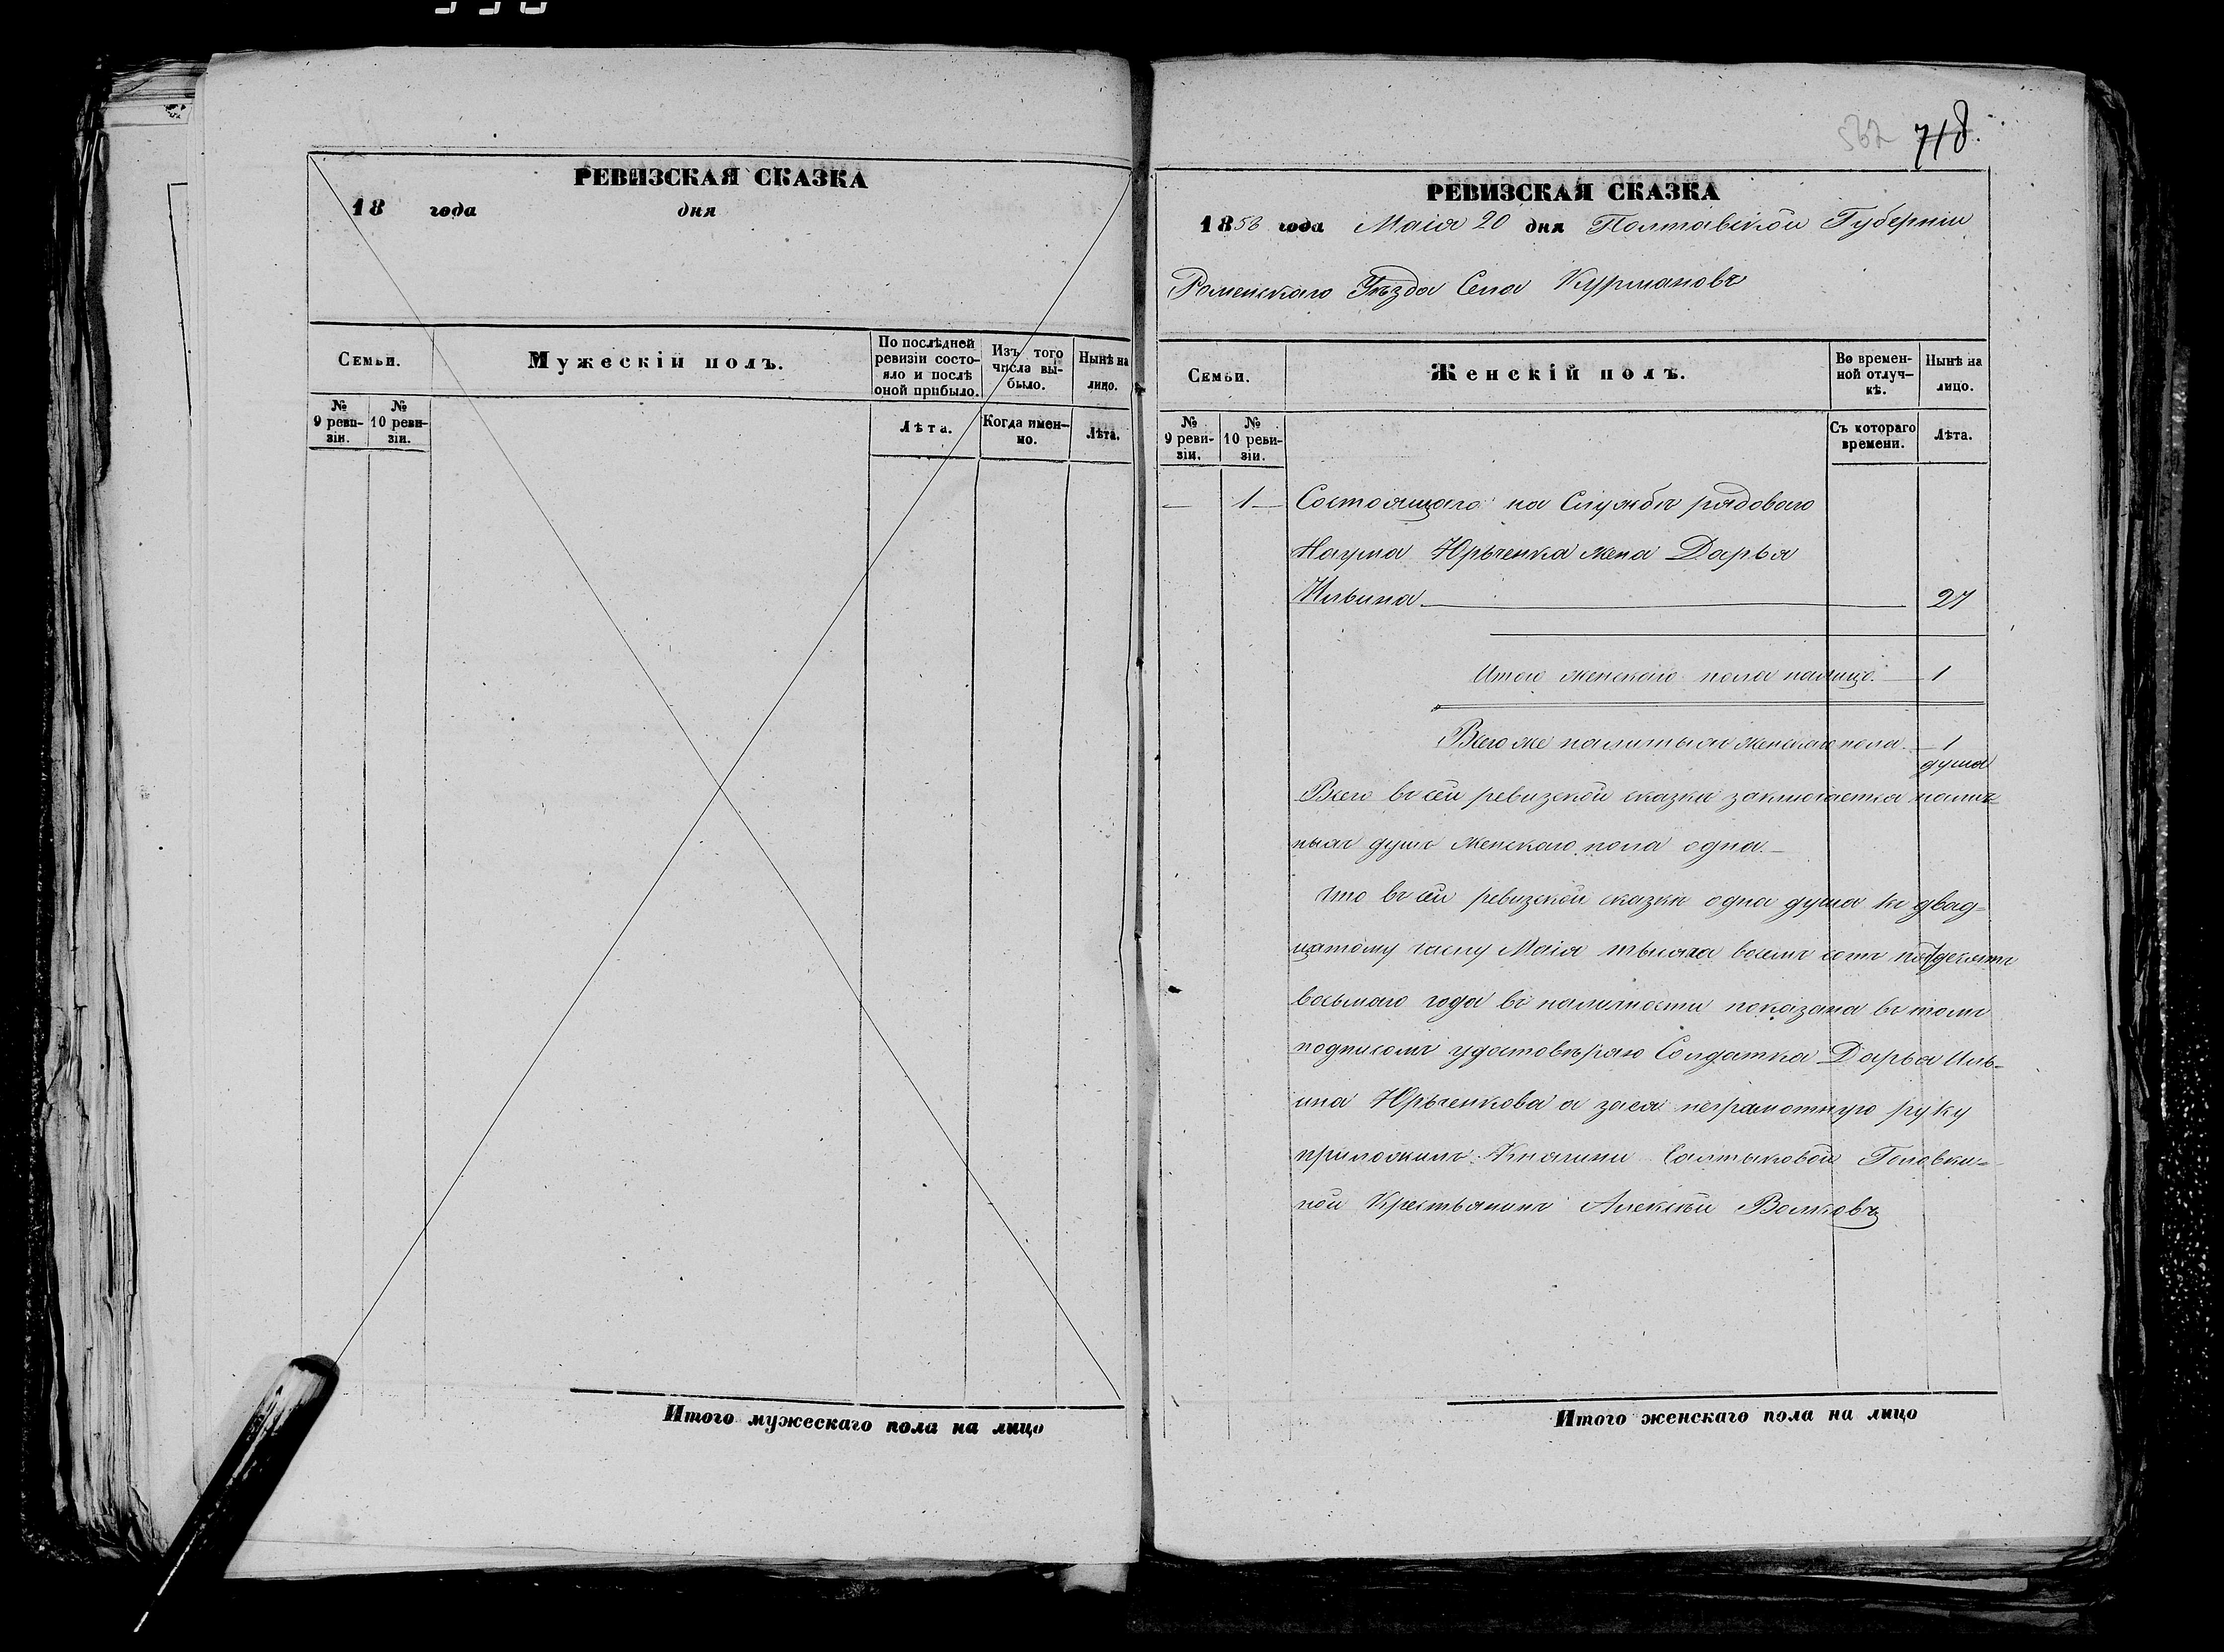 РЕВИЗСКАЯ СКАЗКА
18 года дня
Семьи.
Мужескій полъ.
По послѣдней ревизіи состояло и послѣ оной прибыло.
Изъ того числа выбыло.
Нынѣ на лицо.
№ 9 ревизіи.
№ 10 ревизіи.
Лѣта.
Когда именно.
Лѣта.
Итого мужескаго пола на лицо
562 718.
РЕВИЗСКАЯ СКАЗКА
1858 года Маія 20 дня Полтавской Губерніи
Роменскаго Уѣзда Села Курмановъ
Семьи.
Женскій полъ.
Во временной отлучкѣ.
Нынѣ на лицо.
№ 9 ревизіи.
№ 10 ревизіи.
Съ котораго времени.
Лѣта.
— 1 — Состоящаго на Службѣ рядоваго
Наума Юрченка жена Дарья
Ильина 27
Итого женскаго пола налицо. 1
Всего же наличныхъ женскаго пола 1
душа
Всего въ сей ревизской сказки заключается налич=
ныхъ душъ женскаго пола одна.—
Что въ сей ревизской сказки одна душа къ двад=
цатому числу Маія тысяча восемъ сотъ пятдесятъ
восьмаго года въ наличности показана въ томъ
подписомъ удостовѣряю Солдатка Дарья Иль=
ина Юрченкова а за ея неграмотную руку
приложилъ. Княгини Салтыковой Головки=
ной Крестьянинъ Алексѣй Волковъ
Итого женскаго пола на лицо